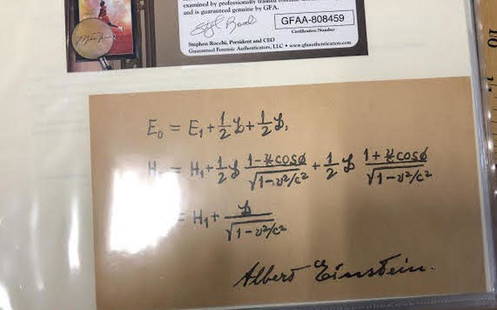 examined by professionally trained
and is guaranteed genuine by GFA.
GFAA-808459
Certification Number
Stephen Rocchi, President and CEO
Guaranteed Forensic Authenticators, LLC • www.gfauthenticators.com
10
E₀ = E₁ + 1/2 L + 1/2 L,
H₀ = H₁ + 1/2 L (1 - v/c cosφ)/√(1 - v²/c²) + 1/2 L (1 + v/c cosφ)/√(1 - v²/c²)
= H₁ + L/√(1 - v²/c²)
Albert Einstein.